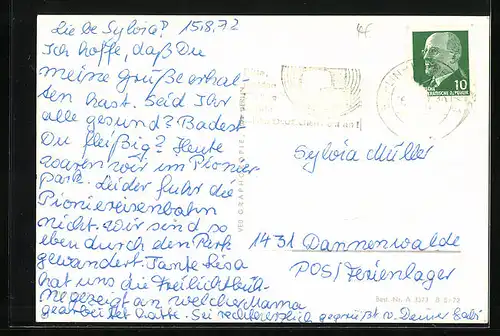 Liebe Sylvia! 15.8.72
Ich hoffe, daß Du
meine Grüße erhal-
ten hast. Seid Ihr
alle gesund? Badest
Du fleißig? Heute
waren wir im Pionier
park. Leider fuhr die
Pioniereisenbahn
nicht. Wir sind so
eben durch den Park
gewandert. Tante Lisa
hat uns die Freilichtbüh-
ne gezeigt an welcher Mama
gearbeitet hatte. Sei recht herzlich gegrüßt v. Deiner
10
VEB GRAPHOKOPIE
Sylvia Müller
1431 Dannenwalde
POST/Ferienlager
Best.-Nr. A